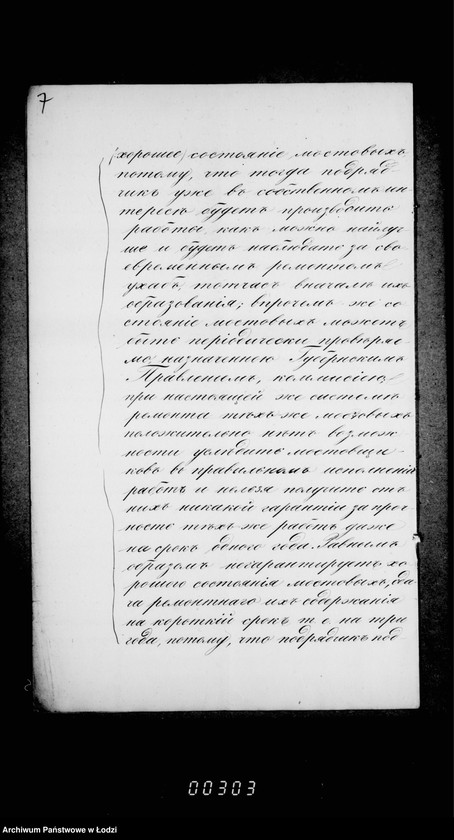 7
(хорошее) состояніе мостовыхъ
потому, что тогда подряд-
чикъ уже въ собственномъ ин
тересѣ будетъ производить
работы какъ можно наилуч
ше и будетъ наблюдать за сво
евременнымъ ремонтомъ
ухабъ тотчасъ вначалѣ ихъ
образованія; впрочемъ же со
стояніе мостовыхъ можетъ
быть періодически провѣряе-
мо назначенною Губернскимъ
Правленіемъ, коммисіею,
при настоящей же системѣ
ремонта тѣхъ же мостовыхъ
положительно нѣтъ возмож
ности услѣдить мостовщи-
ковъ въ правильномъ исполненіи
работъ и нельзя получить отъ
нихъ никакой гарантіи за проч
ность тѣхъ же работъ даже
на срокъ одного года. Равнымъ
образомъ негарантируетъ хо
рошаго состоянія мостовыхъ, отда
ча ремонтнаго ихъ содержанія
на короткій срокъ т. е. на три
года, потому, что подрядчикъ под
00303
Archiwum Państwowe w Łodzi